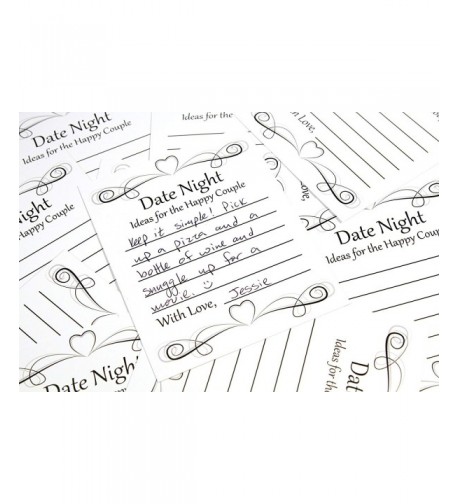 Date Night
Ideas for the Happy Couple
Ideas for the
With Love,
Date Night
Ideas for the Happy Couple
Keep it simple! Pick
up a pizza and a
bottle of wine and
snuggle up for a
movie. ☺
With Love, Jessie
Date Night
Ideas for the Happy Couple
Date Night
Ideas for the Happy Couple
Date Night
Ideas for the Happy Couple
Date
Ideas for the